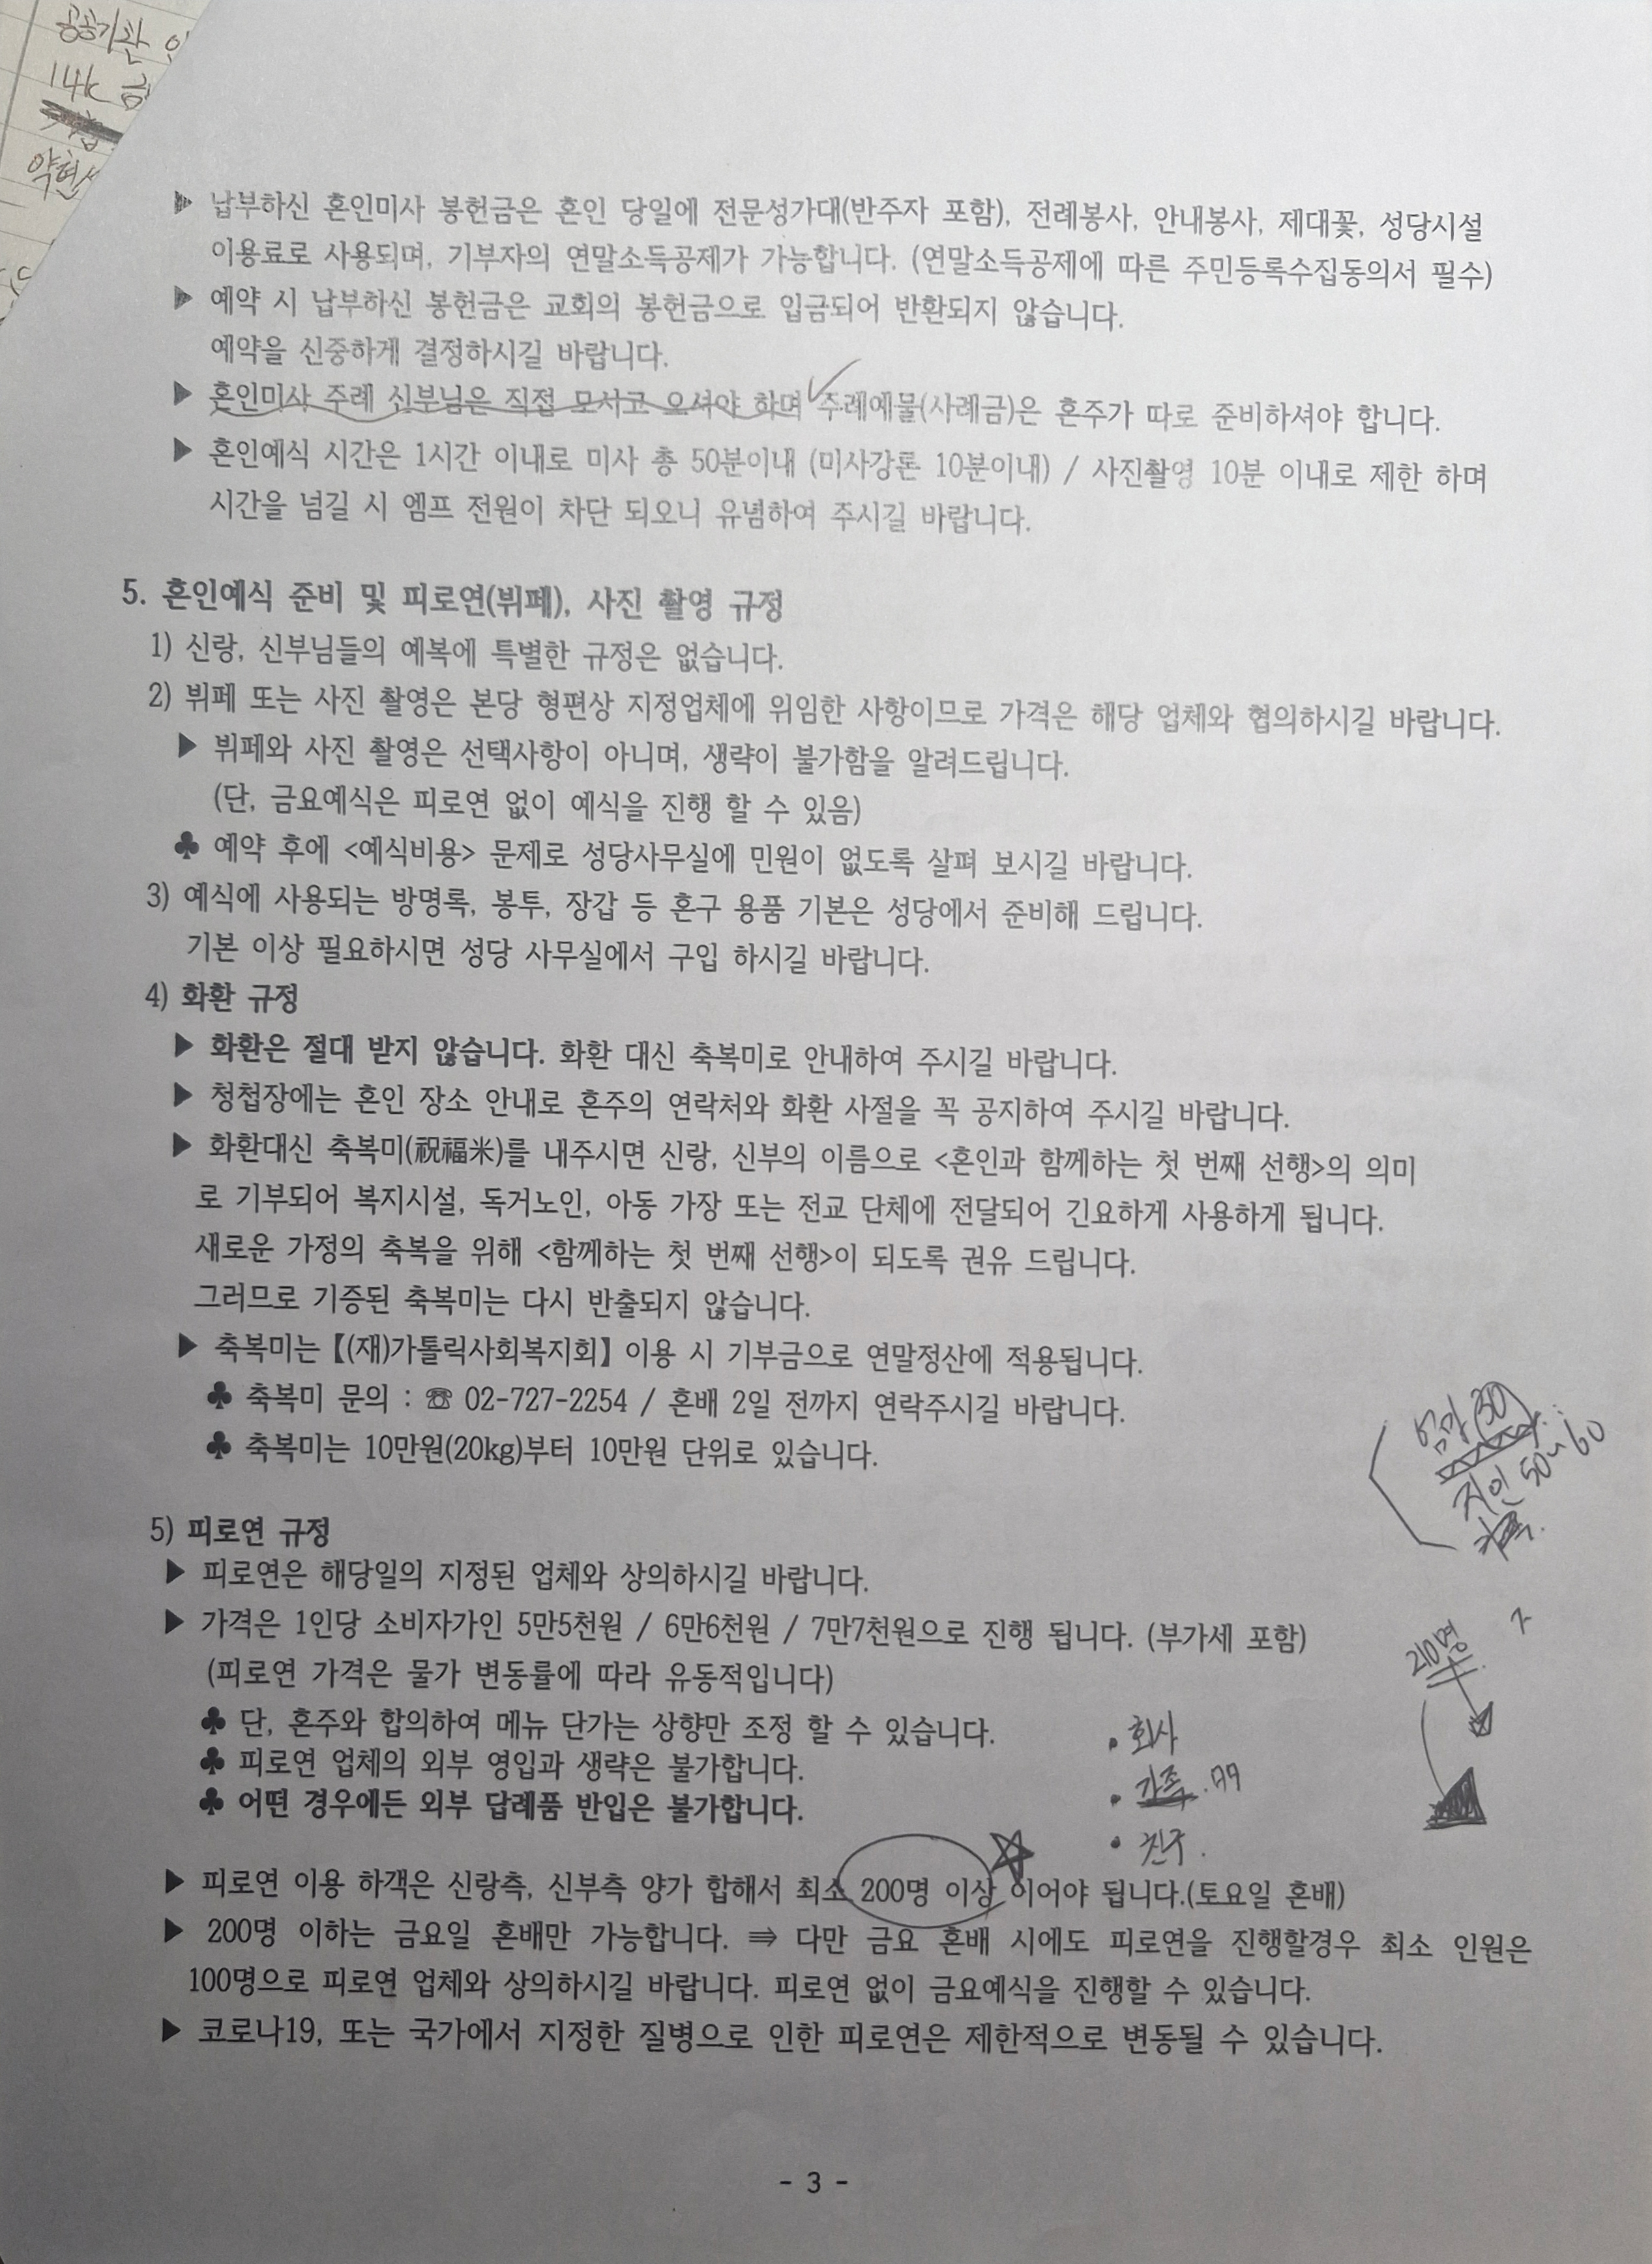 공공기관
14k 금
약현
▶ 납부하신 혼인미사 봉헌금은 혼인 당일에 전문성가대(반주자 포함), 전례봉사, 안내봉사, 제대꽃, 성당시설
이용료로 사용되며, 기부자의 연말소득공제가 가능합니다. (연말소득공제에 따른 주민등록수집동의서 필수)
▶ 예약 시 납부하신 봉헌금은 교회의 봉헌금으로 입금되어 반환되지 않습니다.
예약을 신중하게 결정하시길 바랍니다.
▶ 혼인미사 주례 신부님은 직접 모시고 오셔야 하며 주례예물(사례금)은 혼주가 따로 준비하셔야 합니다.
▶ 혼인예식 시간은 1시간 이내로 미사 총 50분이내 (미사강론 10분이내) / 사진촬영 10분 이내로 제한 하며
시간을 넘길 시 엠프 전원이 차단 되오니 유념하여 주시길 바랍니다.
5. 혼인예식 준비 및 피로연(뷔페), 사진 촬영 규정
1) 신랑, 신부님들의 예복에 특별한 규정은 없습니다.
2) 뷔페 또는 사진 촬영은 본당 형편상 지정업체에 위임한 사항이므로 가격은 해당 업체와 협의하시길 바랍니다.
▶ 뷔페와 사진 촬영은 선택사항이 아니며, 생략이 불가함을 알려드립니다.
(단, 금요예식은 피로연 없이 예식을 진행 할 수 있음)
♣ 예약 후에 <예식비용> 문제로 성당사무실에 민원이 없도록 살펴 보시길 바랍니다.
3) 예식에 사용되는 방명록, 봉투, 장갑 등 혼구 용품 기본은 성당에서 준비해 드립니다.
기본 이상 필요하시면 성당 사무실에서 구입 하시길 바랍니다.
4) 화환 규정
▶ 화환은 절대 받지 않습니다. 화환 대신 축복미로 안내하여 주시길 바랍니다.
▶ 청첩장에는 혼인 장소 안내로 혼주의 연락처와 화환 사절을 꼭 공지하여 주시길 바랍니다.
▶ 화환대신 축복미(祝福米)를 내주시면 신랑, 신부의 이름으로 <혼인과 함께하는 첫 번째 선행>의 의미
로 기부되어 복지시설, 독거노인, 아동 가장 또는 전교 단체에 전달되어 긴요하게 사용하게 됩니다.
새로운 가정의 축복을 위해 <함께하는 첫 번째 선행>이 되도록 권유 드립니다.
그러므로 기증된 축복미는 다시 반출되지 않습니다.
▶ 축복미는 【(재)가톨릭사회복지회】 이용 시 기부금으로 연말정산에 적용됩니다.
♣ 축복미 문의 : ☏ 02-727-2254 / 혼배 2일 전까지 연락주시길 바랍니다.
♣ 축복미는 10만원(20kg)부터 10만원 단위로 있습니다.
엄마 (30)
지인 50~60
5) 피로연 규정
▶ 피로연은 해당일의 지정된 업체와 상의하시길 바랍니다.
▶ 가격은 1인당 소비자가인 5만5천원 / 6만6천원 / 7만7천원으로 진행 됩니다. (부가세 포함)
210명
(피로연 가격은 물가 변동률에 따라 유동적입니다)
♣ 단, 혼주와 합의하여 메뉴 단가는 상향만 조정 할 수 있습니다.
• 회사
♣ 피로연 업체의 외부 영입과 생략은 불가합니다.
• 가족.
♣ 어떤 경우에든 외부 답례품 반입은 불가합니다.
• 친구.
▶ 피로연 이용 하객은 신랑측, 신부측 양가 합해서 최소 200명 이상 이어야 됩니다.(토요일 혼배)
▶ 200명 이하는 금요일 혼배만 가능합니다. ⇛ 다만 금요 혼배 시에도 피로연을 진행할경우 최소 인원은
100명으로 피로연 업체와 상의하시길 바랍니다. 피로연 없이 금요예식을 진행할 수 있습니다.
▶ 코로나19, 또는 국가에서 지정한 질병으로 인한 피로연은 제한적으로 변동될 수 있습니다.
- 3 -